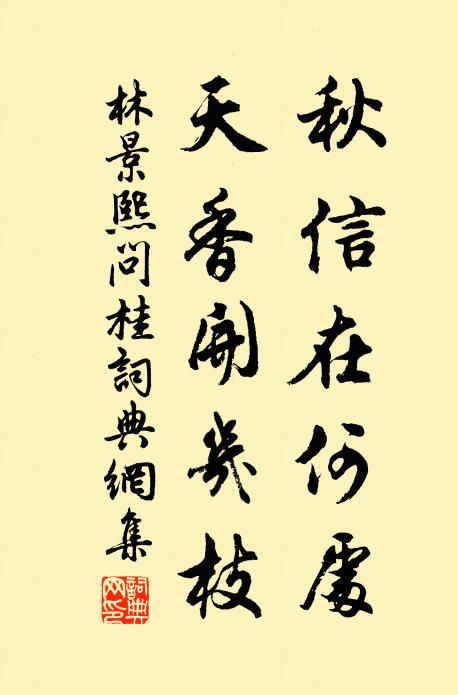 秋信在何處
天香開幾枝
林景熙問桂詞典網集
詞典网印